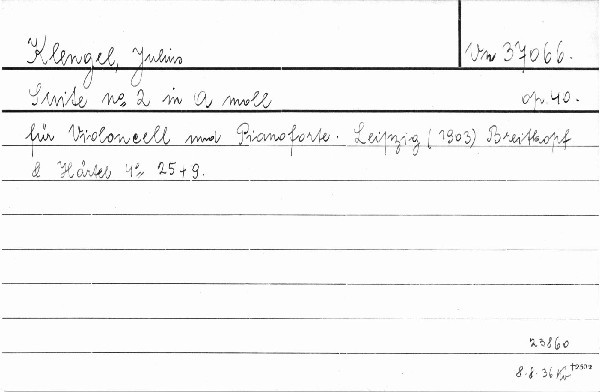 Klengel, Julius Vn 37066.
Suite no 2 in A moll op. 40.
für Violoncell und Pianoforte. Leipzig (1903) Breitkopf
& Härtel 4o 25+9.
23860
8.8.36